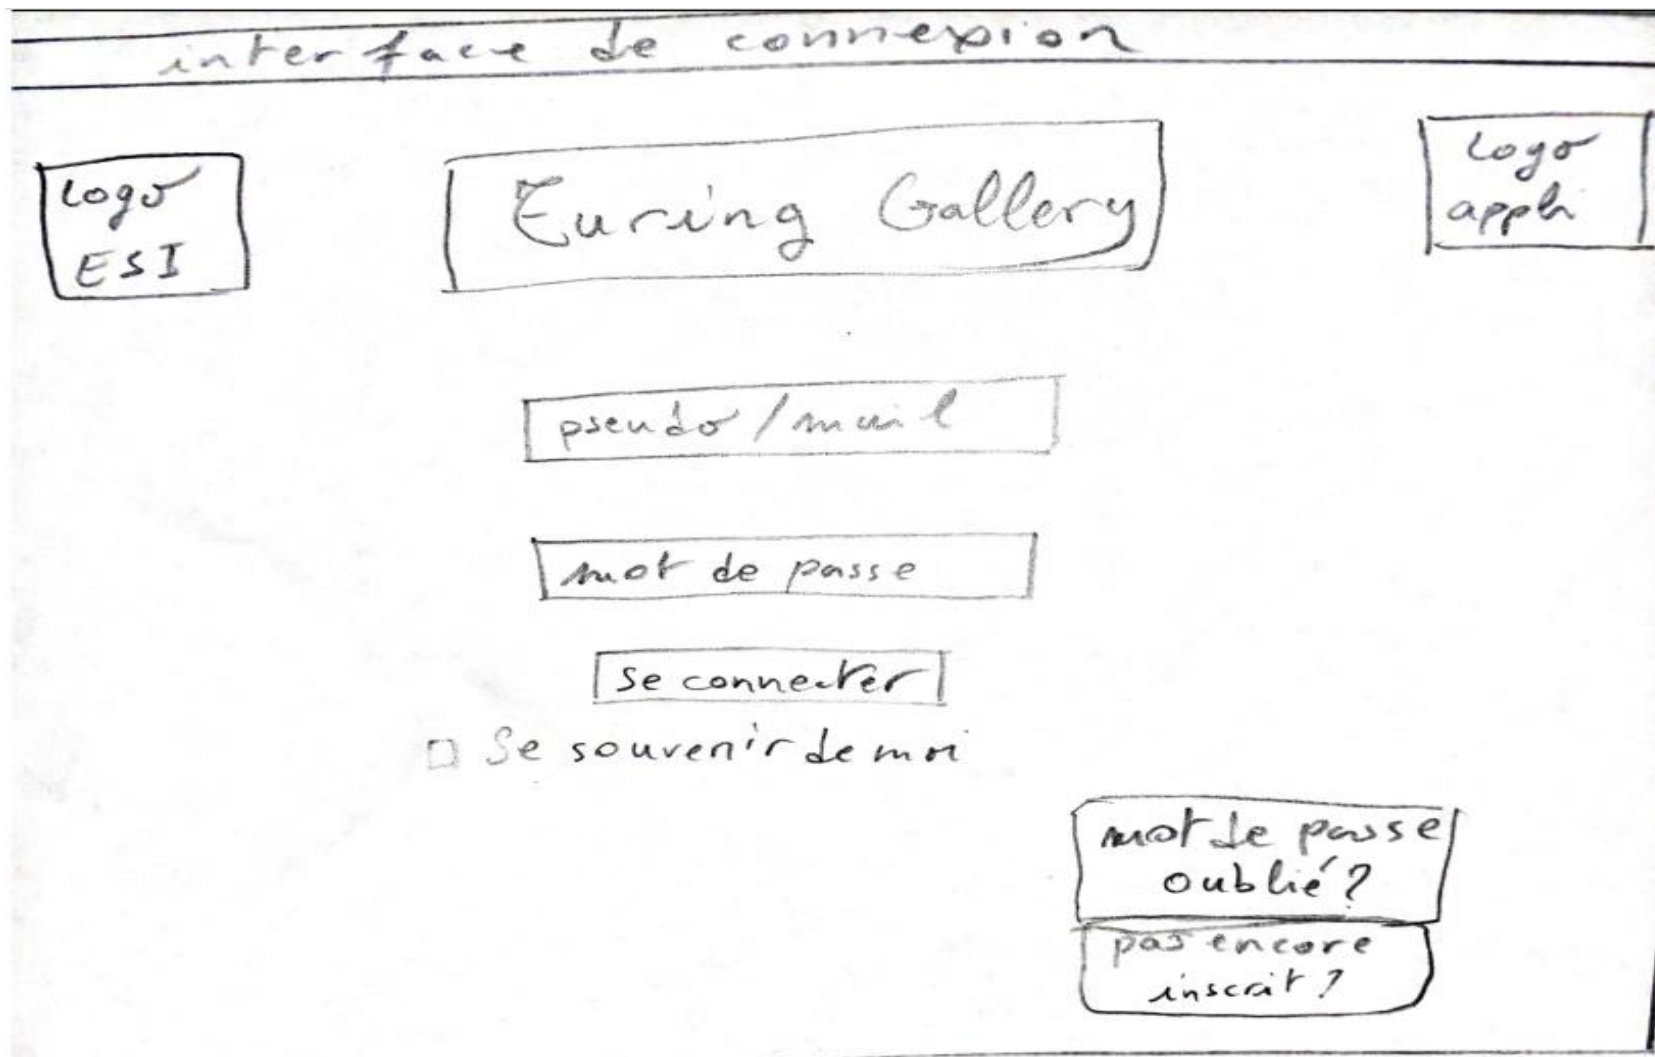 interface de connexion
Logo
ESI
Turing Gallery
Logo
appli
pseudo/mail
mot de passe
se connecter
Se souvenir de moi
mot de passe
oublié?
pas encore
inscrit?